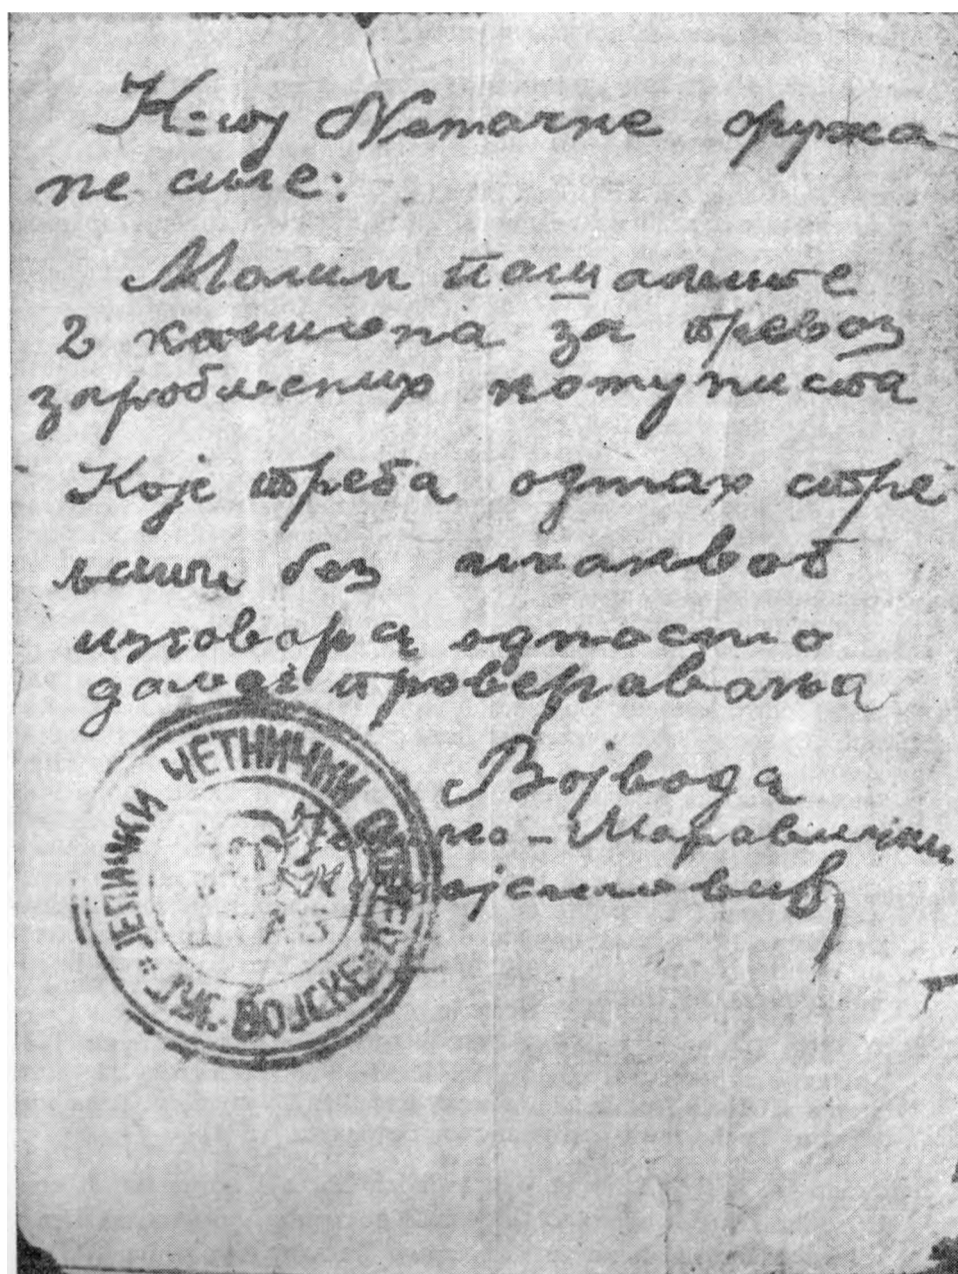 К-ту Немачке оружа
не силе:
Молим пошаљите
2 камиона за превоз
заробљених комуниста
Које треба одмах стре
љати без икаквог
изговора односно
даљег проверавања
Војвода
Моравички
ЈЕЛИЧКИ ЧЕТНИЧКИ
ЈУГ. ВОЈСКЕ